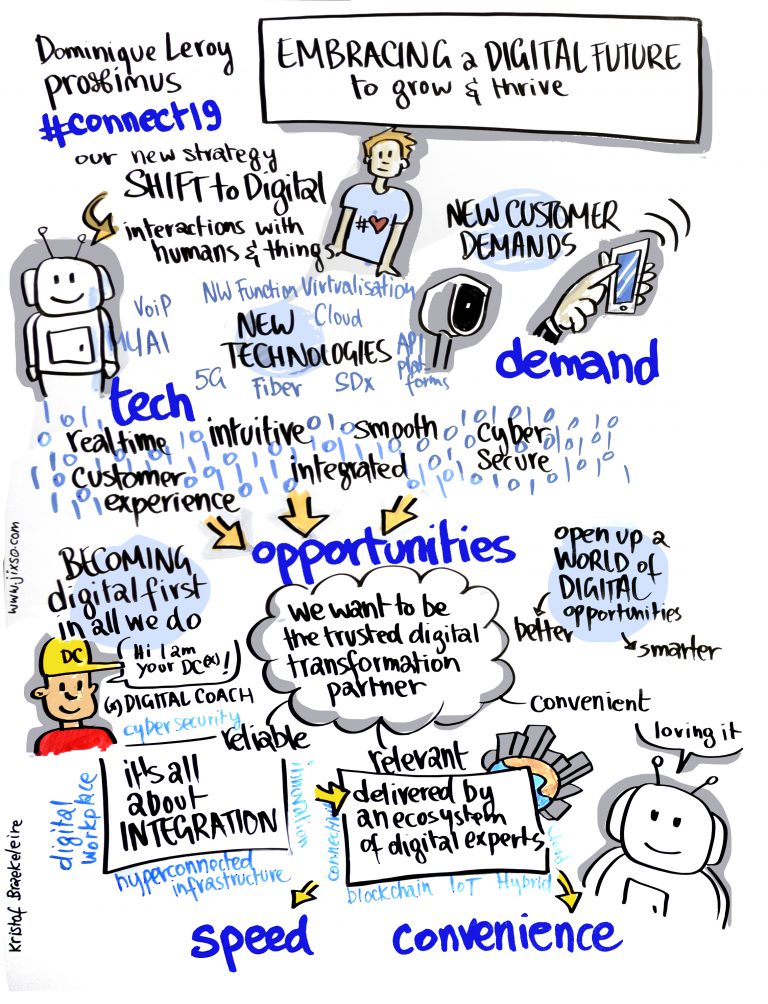 Dominique Leroy
proximus
#connect19
EMBRACING a DIGITAL FUTURE
to grow & thrive
our new strategy
SHIFT to Digital
interactions with
humans & things
#
NEW CUSTOMER
DEMANDS
demand
VoiP
AI
NW Function Virtualisation
Cloud
NEW
TECHNOLOGIES
API
plat-
forms
5G
Fiber
SDx
tech
real time
customer
experience
intuitive
smooth
integrated
cyber
secure
opportunities
BECOMING
digital first
in all we do
DC
Hi I am
your DC(*)!
(*) DIGITAL COACH
cybersecurity
we want to be
the trusted digital
transformation
partner
open up a
WORLD of
DIGITAL
opportunities
better
smarter
reliable
relevant
convenient
loving it
digital
workplace
it's all
about
INTEGRATION
innovation
hyperconnected
infrastructure
delivered by
an ecosystem
of digital experts
cloud
blockchain IoT Hybrid
speed
convenience
www.jixso.com
Kristof Braekeleire